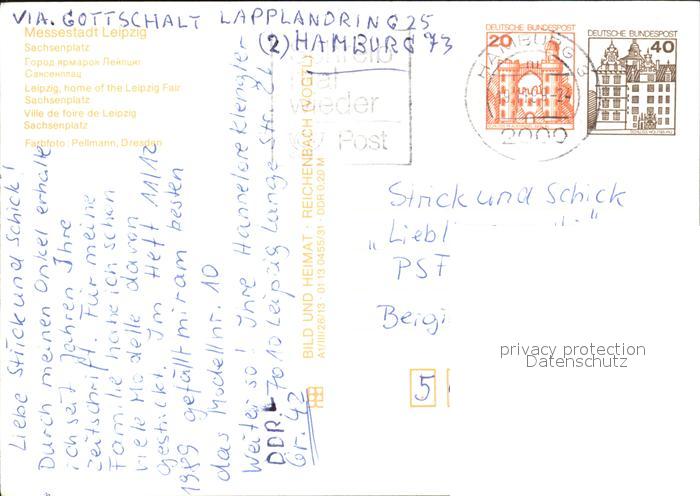 VIA. GOTTSCHALT LAPPLANDRING 25
(2) HAMBURG 73
Messestadt Leipzig
Sachsenplatz
Город ярмарок Лейпциг
Саксенплац
Leipzig, home of the Leipzig Fair
Sachsenplatz
Ville de foire de Leipzig
Sachsenplatz
Farbfoto: Pellmann, Dresden
Liebe Strick und Schick!
Durch meinen Onkel erhalte
ich seit Jahren Ihre
Zeitschrift. Für meine
Familie habe ich schon
viele Modelle davon
gestrickt. Im Heft 11/12
1989 gefällt mir am besten
das Modellnr. 10
Weiter so! Ihre Hannelore Klengler
DDR 7010 Leipzig Lange Str. 24
Gr. 42
BILD UND HEIMAT · REICHENBACH (VOGTL)
A1/III/26/13 01 13 0455/31 · DDR 0,20 M
wieder
Post
DEUTSCHE BUNDESPOST
20
DEUTSCHE BUNDESPOST
40
HAMBURG
2000
Strick und Schick
PSF
5
privacy protection
Datenschutz